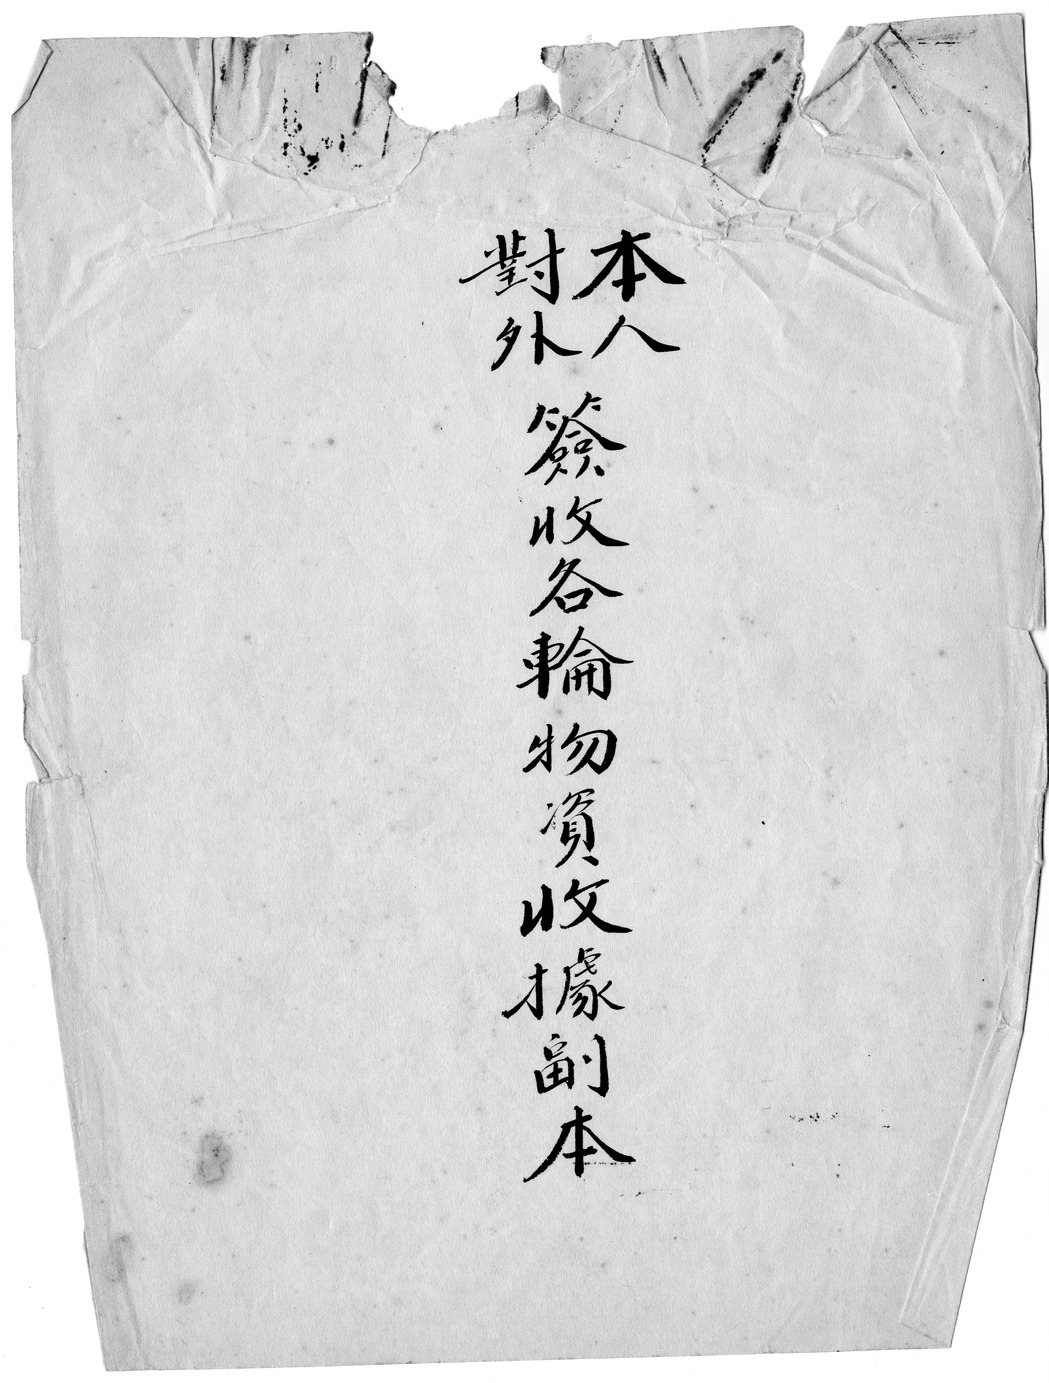 本人
對外
簽收各輪物資收據副本